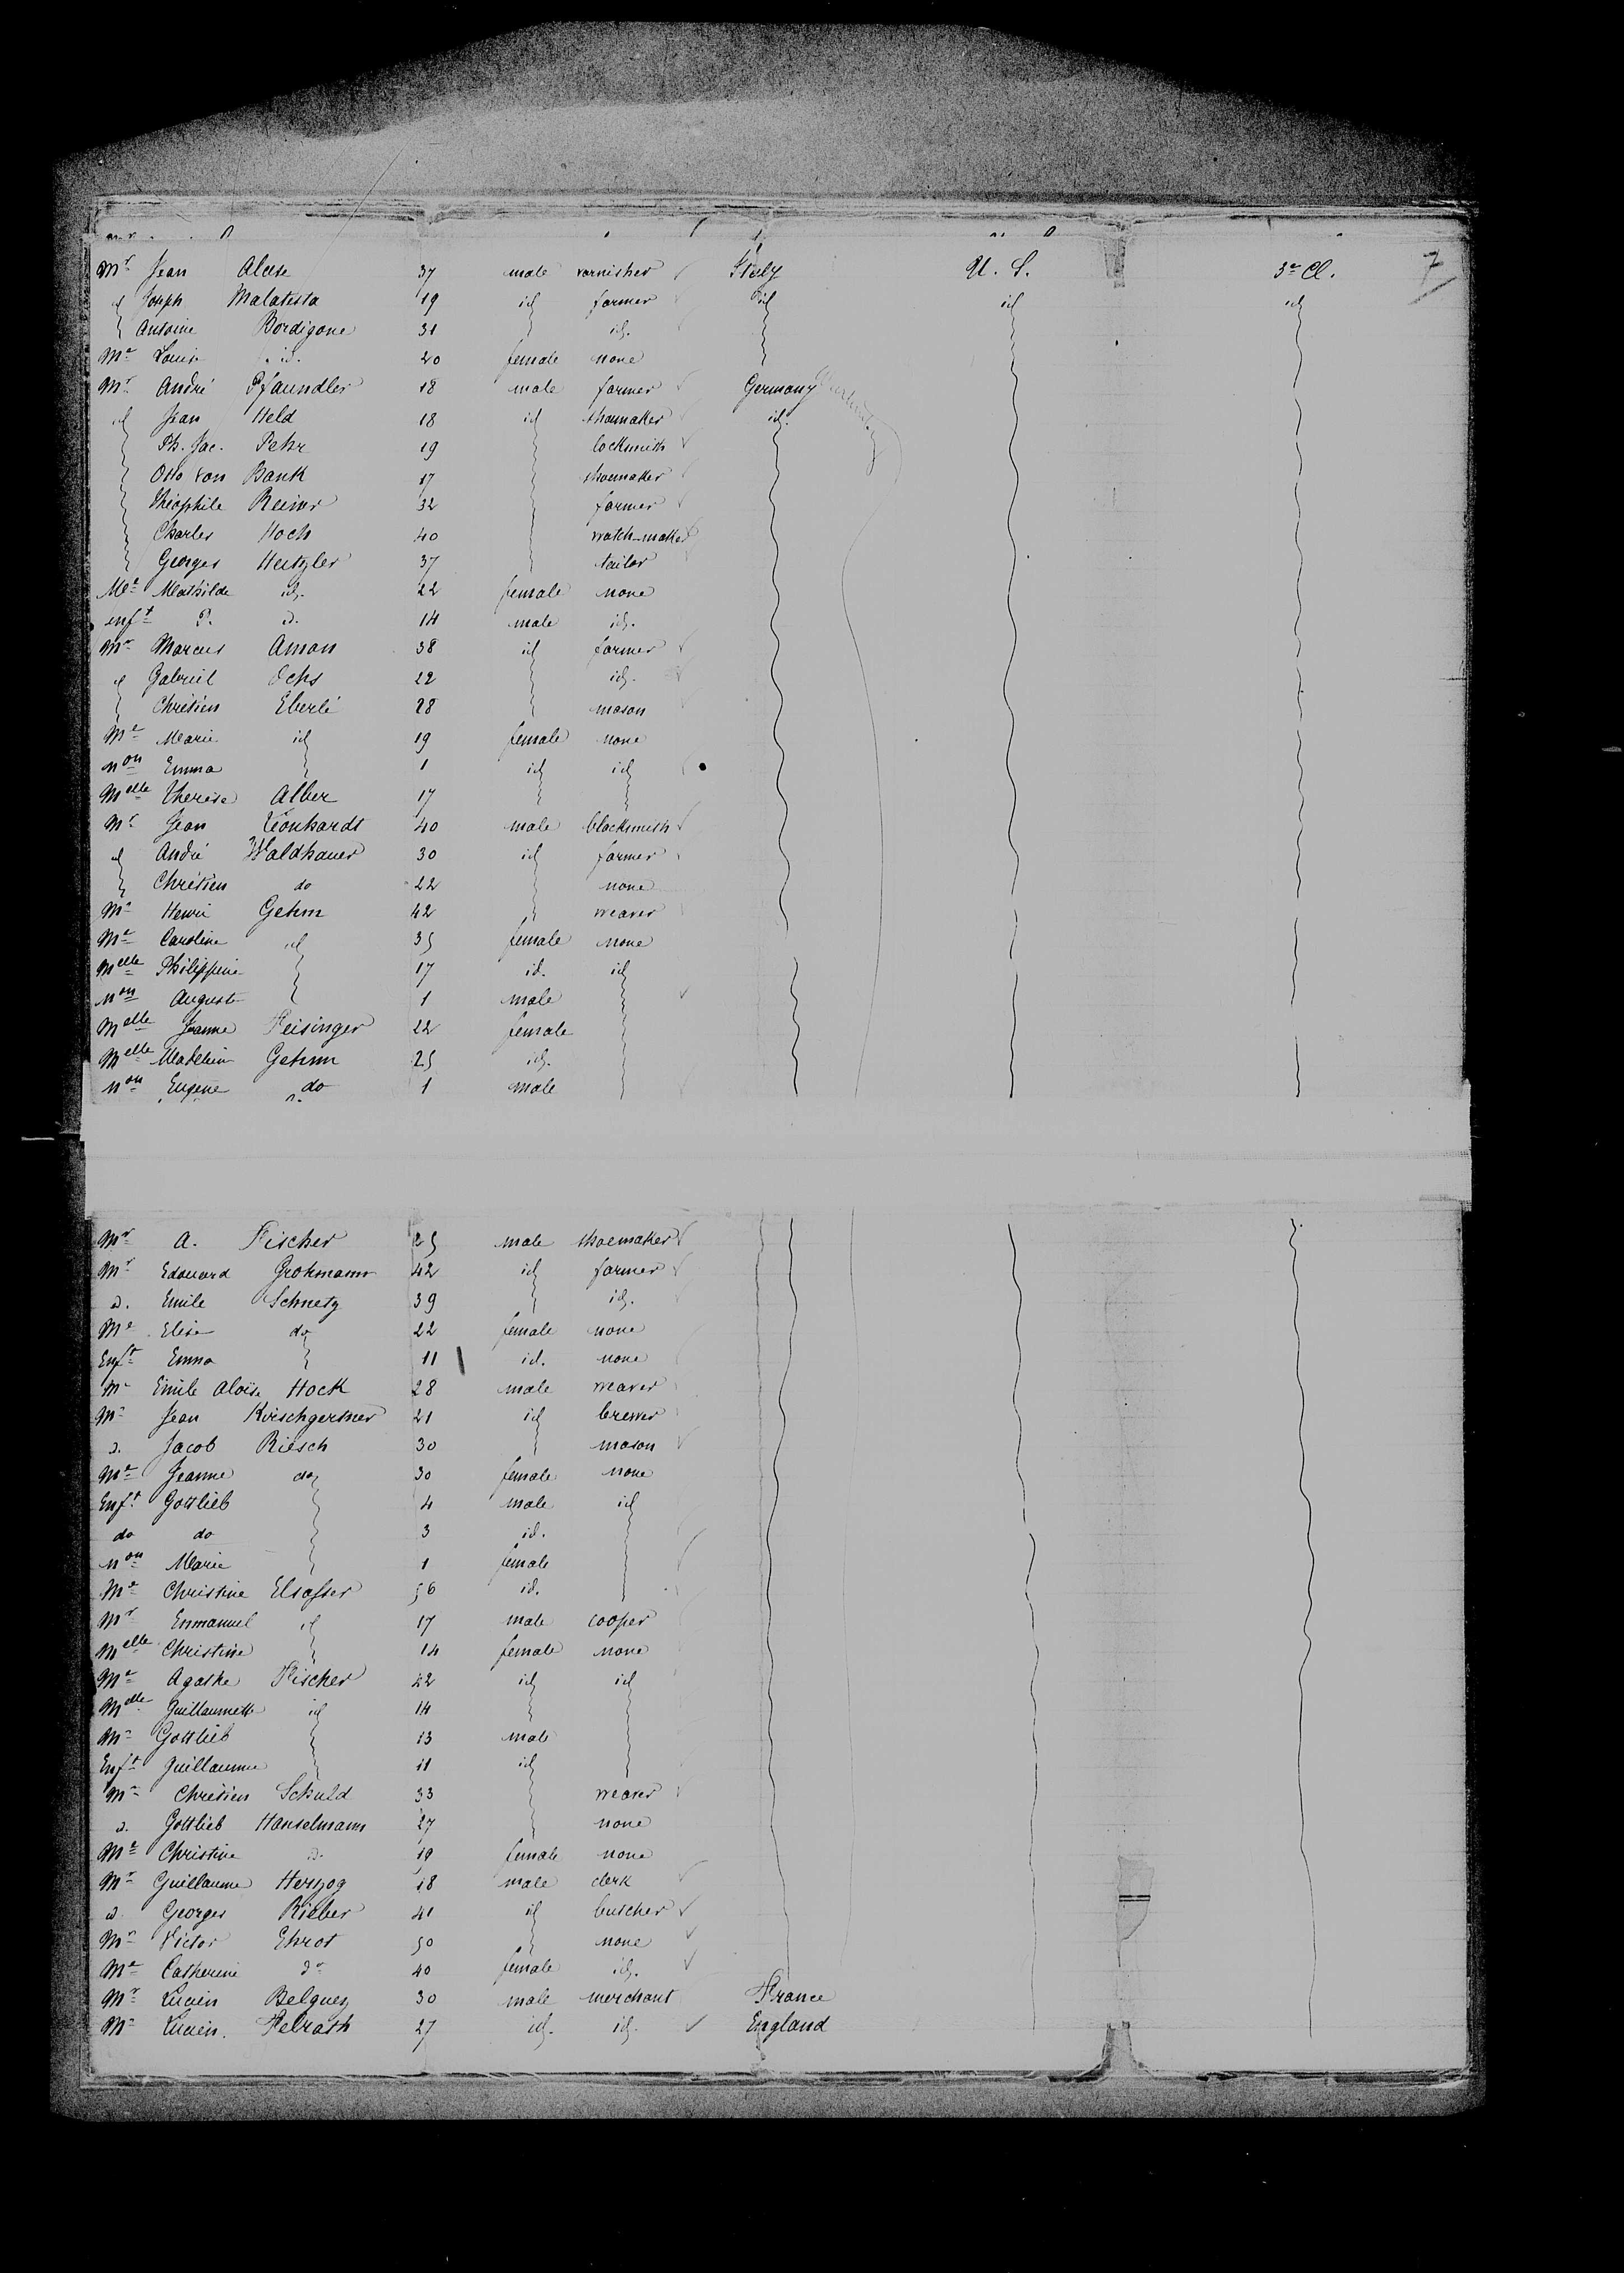 7
Mr Jean Aluse 37 male varnisher Italy U. S. 3e Cl.
id Joseph Malatesta 19 id farmer id id id
Antoine Bordigone 31 id.
Me Louise id. 20 female none
Mr André Pfaundler 18 male farmer Germany
id Jean Held 18 id shoemaker id.
Ph. Jac. Pehr 19 locksmith
Otto von Bank 17 shoemaker
Théophile Reiner 32 farmer
Charles Hoch 40 watch-maker
Georges Hertzler 37 tailor
Me Mathilde id. 22 female none
enft P. d. 14 male id.
Mr Marcus Aman 38 id farmer
id Gabriel Ochs 22 id.
Chrétien Eberlé 28 mason
Me Marie id 19 female none
non Emma 1 id id
Melle Thérèse Alber 17
Mr Jean Léonhardt 40 male blacksmith
id André Waldhauer 30 id farmer
Chrétien do 22 none
Mr Henri Gehm 42 weaver
Me Caroline id 35 female none
Melle Philippine 17 id. id
non Auguste 1 male
Melle Jeanne Feisinger 22 female
Melle Madeleine Gehm 25 id.
non Eugène do 1 male
Mr A. Fischer 25 male shoemaker
Mr Edouard Grohmann 42 id farmer
d. Emile Schnetz 39 id.
Me Elise do 22 female none
Enft Emma 11 id. none
Mr Emile Aloïse Hock 28 male weaver
Mr Jean Kirschgertner 21 id brewer
d. Jacob Riesch 30 mason
Me Jeanne do 30 female none
Enft Gottlieb 4 male id
do do 3 id.
non Marie 1 female
Me Christine Elsasser 56 id.
Mr Emmanuel id 17 male cooper
Melle Christine 14 female none
Me Agathe Fischer 42 id id
Melle Guillaumette id 14
Mr Gottlieb 13 male
Enft Guillaume 11 id
Mr Chrétien Schuld 33 weaver
d. Gottlieb Hanselmann 27 none
Me Christine d. 19 female none
Mr Guillaume Herzog 18 male clerk
d. Georges Rieber 41 id butcher
Mr Victor Ehrot 50 none
Me Catherine do 40 female id.
Mr Lucien Belguey 30 male merchant France
Mr Lucien Felrath 27 id. id. England